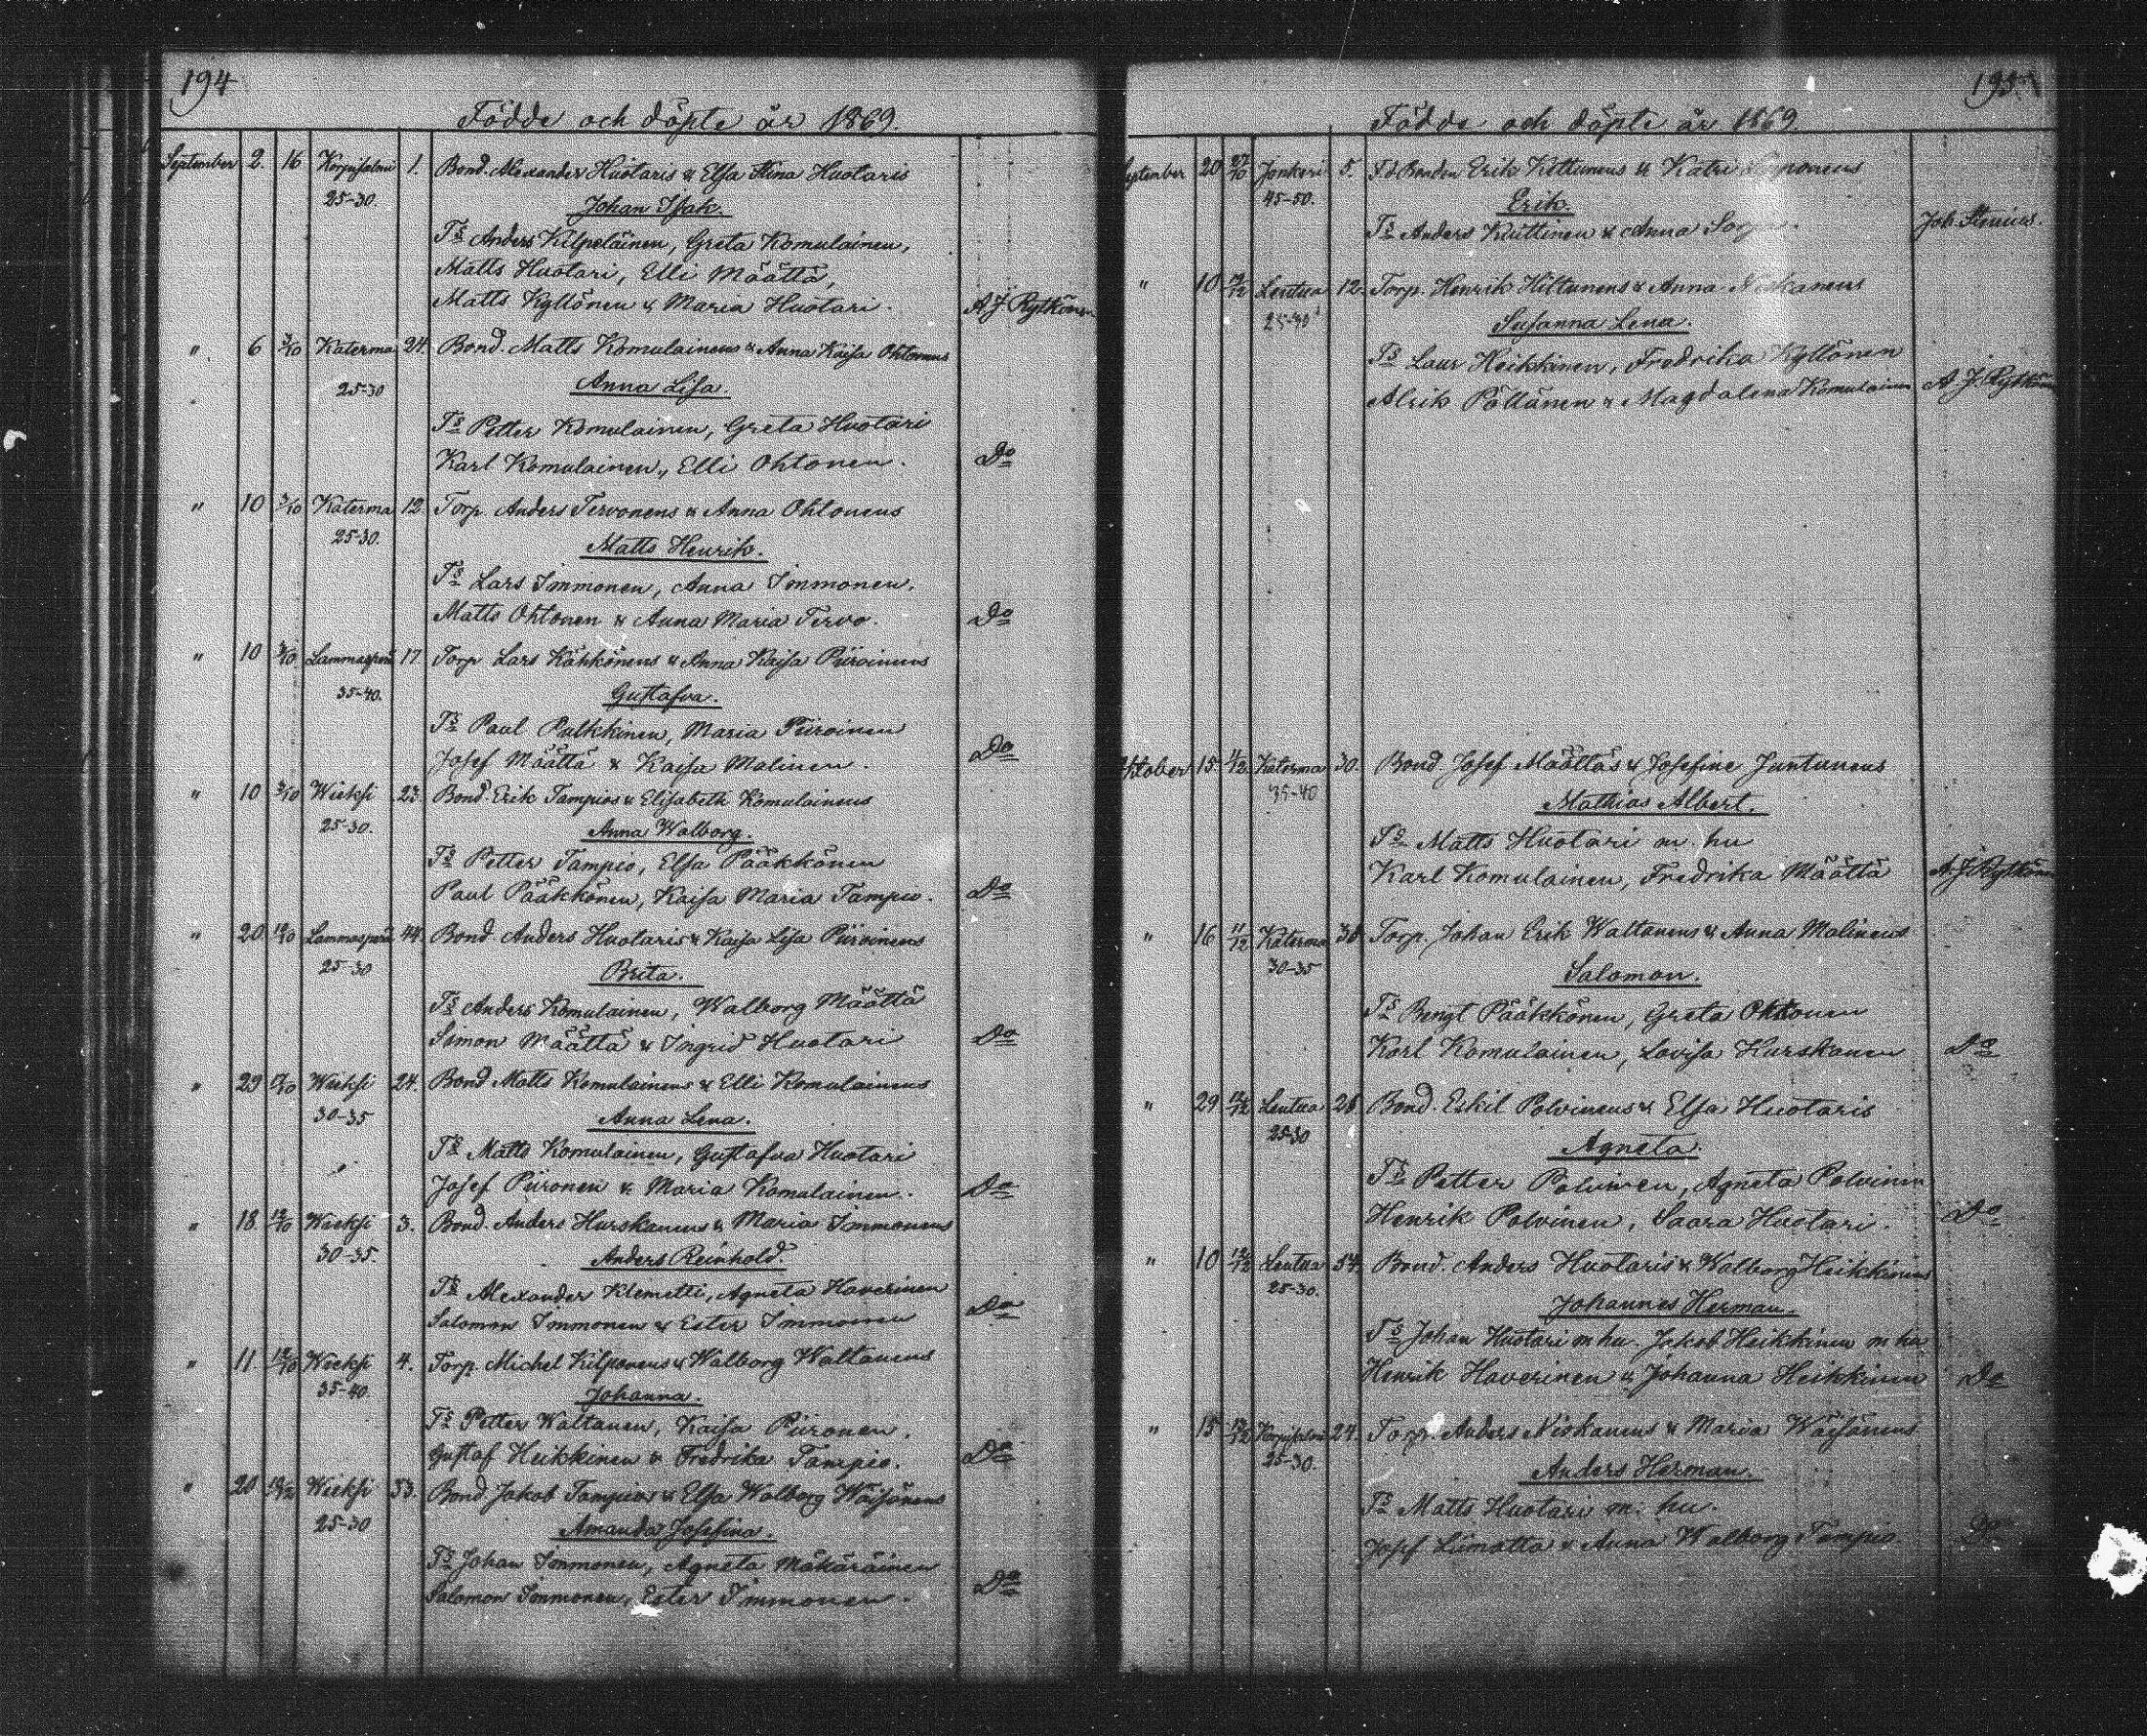 194
Födde och döpte år 1869.
September 2. 16 Korpisalmi 1. Bond. Alexander Huotaris & Elsa Stina Huotaris
25-30. Johan Isak.
Ts Anders Kilpeläinen, Greta Komulainen,
Matts Huotari, Elli Määttä,
Matts Kyllönen & Maria Huotari. A. J. Rytkönen
" 6 3/10 Katerma 24. Bond. Matts Komulainens & Anna Kaisa Ohtonens
25-30 Anna Lisa.
Ts Petter Komulainen, Greta Huotari
Karl Komulainen, Elli Ohtonen. Do
" 10 3/10 Katerma 12. Torp. Anders Tervonens & Anna Ohtonens
25-30. Matts Henrik.
Ts Lars Immonen, Anna Immonen,
Matts Ohtonen & Anna Maria Tervo. Do
" 10 3/10 Lammasperä 17. Torp Lars Kähkönens & Anna Kaisa Piiroinens
35-40. Gustafva.
Ts Paul Pulkkinen, Maria Piiroinen
Josef Määttä & Kaisa Malinen. Do
" 10 3/10 Wieksi 23. Bond. Erik Tampios & Elisabeth Komulainens
25-30. Anna Walborg.
Ts Petter Tampio, Elsa Pääkkönen
Paul Pääkkönen, Kaisa Maria Tampio. Do
" 20 Lammasperä 44. Bond. Anders Huotaris & Kaisa Lisa Piiroinens
25-30 Brita.
Ts Anders Komulainen, Walborg Määttä
Simon Määttä & Ingrid Huotari Do
" 29 Wieksi 24. Bond Matts Komulainens & Elli Komulainens
30-35 Anna Lena.
Ts Matts Komulainen, Gustafva Huotari
Josef Piironen & Maria Komulainen. Do
" 18. 12/10 Wieksi 3. Bond. Anders Hurskanens & Maria Immonens
30-35. Anders Reinhold.
Ts Alexander Klemetti, Agneta Haverinen
Salomon Immonen & Ester Immonen Do
" 11. 12/10 Wieksi 4. Torp. Michel Kilponens & Walborg Waltanens
35-40. Johanna.
Ts Petter Waltanen, Kaisa Piironen,
Gustaf Heikkinen & Fredrika Tampio. Do
" 20 Wieksi 33. Bond Jakob Tampios & Elsa Walborg Wäisänens
25-30 Amanda Josefina.
Ts Johan Immonen, Agneta Mäkäräinen
Salomon Immonen, Ester Immonen. Do
195.
Födde och döpte år 1869.
September 20 27/10 Jonkeri 5. F.d. Bonden Erik Kettunens & Katri
45-50. Erik.
Ts Anders Kuittinen & Anna Joh. Stenius.
" 10. Lentua 12. Torp. Henrik Hiltunens & Anna Niskanens
25-30 Susanna Lena.
Ts Laur Heikkinen, Fredrika Kyllönen
Alrik Pöllänen & Magdalena Komulainen A. J. Rytkönen
Oktober 15. 4/12 Katerma 30. Bond Josef Määttäs & Josefine Juntunens
35-40 Mathias Albert.
Ts Matts Huotari m. hu
Karl Komulainen, Fredrika Määttä A. J. Rytkönen
" 16 11/12 Katerma 30. Torp. Johan Erik Waltanens & Anna Malinens
30-35 Salomon.
Ts Bengt Pääkkönen, Greta Ohtonen
Karl Komulainen, Lovisa Kurskanen Do
" 29 12/12 Lentua 26. Bond. Eskil Polvinens & Elsa Huotaris
25-30 Agneta.
Ts Petter Polvinen, Agneta Polvinen
Henrik Polvinen, Saara Huotari. Do
" 10 12/12 Lentua 54. Bond. Anders Huotaris & Walborg Heikkinens
25-30. Johannes Herman.
Ts Johan Huotari m hu. Jakob Heikkinen m hu
Henrik Haverinen & Johanna Heikkinen Do
" 15 Korpisalmi 24. Torp. Anders Niskanens & Maria Wäisänens
25-30. Anders Herman.
Ts Matts Huotari m: hu.
Josef Liimatta & Anna Walborg Tampio Do